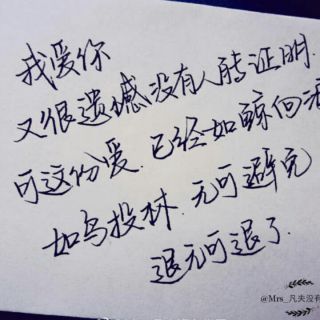 我爱你
又很遗憾没有人能证明.
可这份爱.已经如鲸向海
如鸟投林.无可避免
退无可退了.
@Mrs_凡夫没有